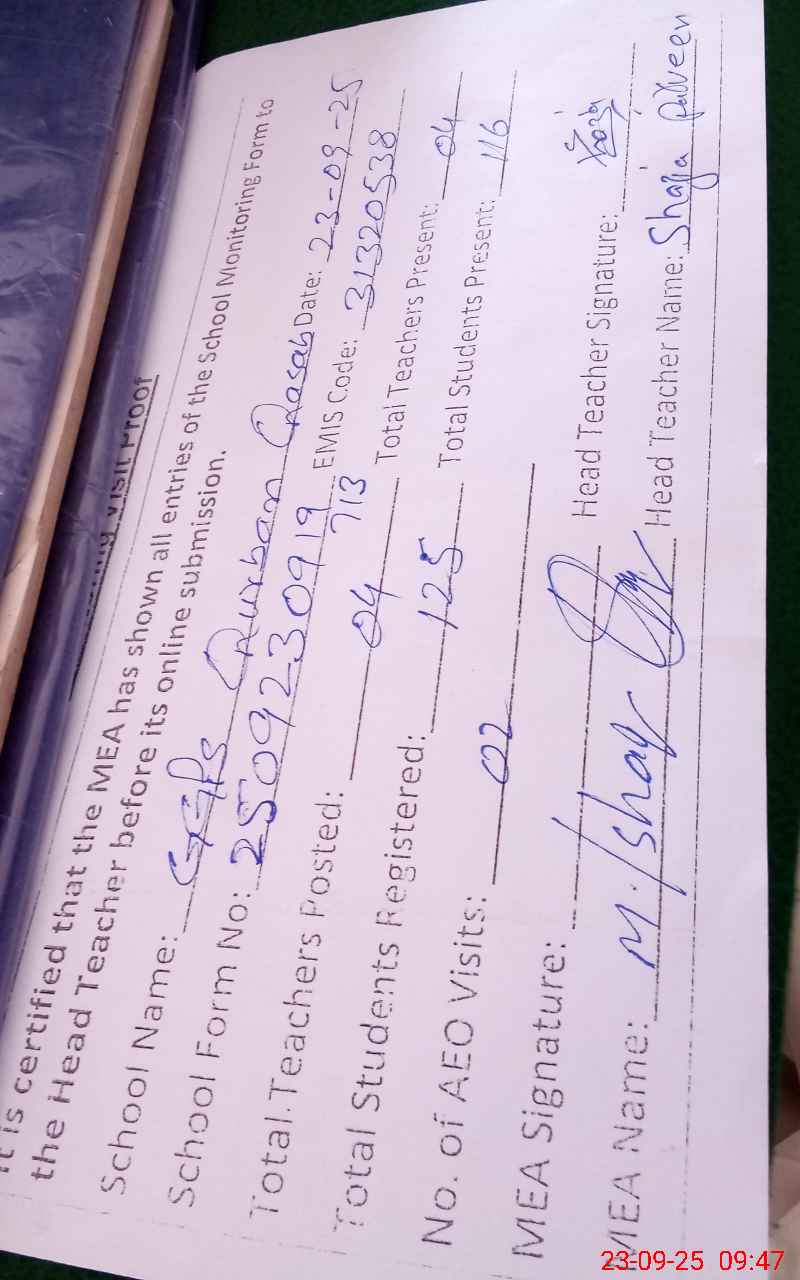 Visit Proof
It is certified that the MEA has shown all entries of the School Monitoring Form to
the Head Teacher before its online submission.
School Name: GGPS Qurban Qasab Date: 23-09-25
School Form No: 2509230919713 EMIS Code: 31320538
Total Teachers Posted: 04 Total Teachers Present: 04
Total Students Registered: 125 Total Students Present: 116
No. of AEO Visits: 02
MEA Signature: Head Teacher Signature:
MEA Name: M. Ishaq Head Teacher Name: Shazia Parveen
23-09-25 09:47